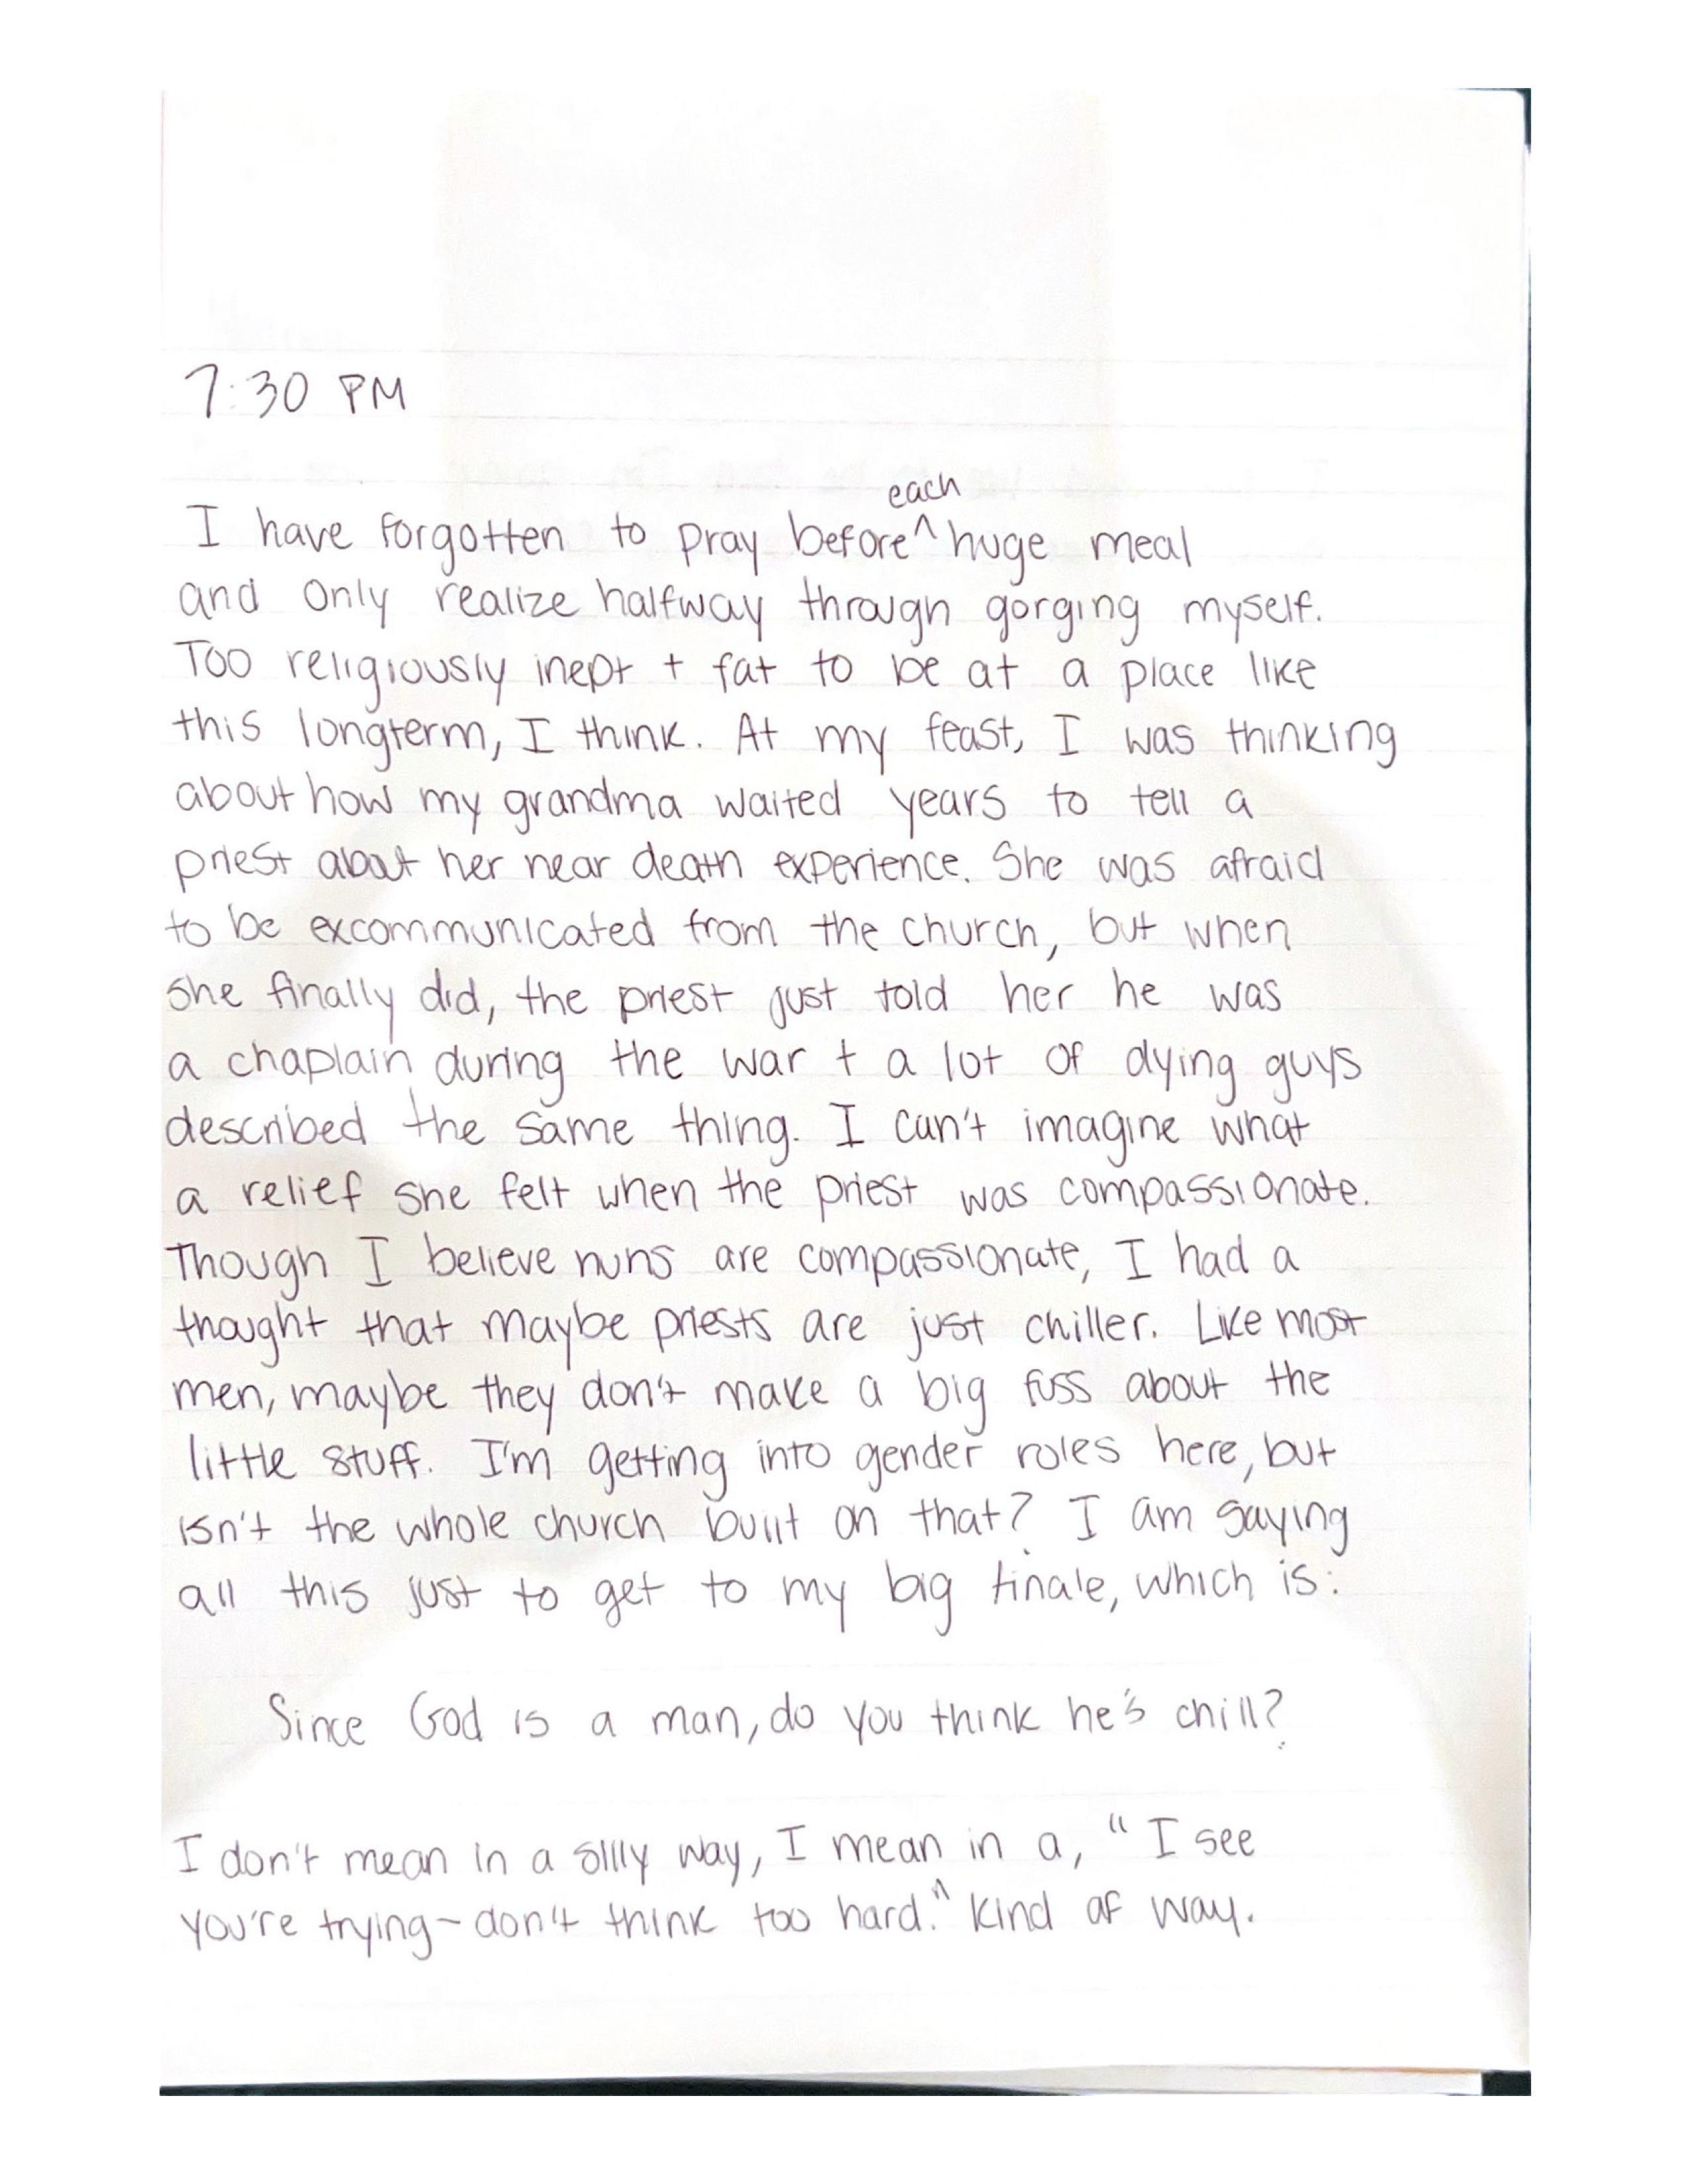 7:30 PM
I have forgotten to pray before ^each huge meal
and only realize halfway through gorging myself.
Too religiously inept + fat to be at a place like
this longterm, I think. At my feast, I was thinking
about how my grandma waited years to tell a
priest about her near death experience. She was afraid
to be excommunicated from the church, but when
she finally did, the priest just told her he was
a chaplain during the war + a lot of dying guys
described the same thing. I can't imagine what
a relief she felt when the priest was compassionate.
Though I believe nuns are compassionate, I had a
thought that maybe priests are just chiller. Like most
men, maybe they don't make a big fuss about the
little stuff. I'm getting into gender roles here, but
isn't the whole church built on that? I am saying
all this just to get to my big finale, which is:
Since God is a man, do you think he's chill?
I don't mean in a silly way, I mean in a, "I see
you're trying - don't think too hard." kind of way.